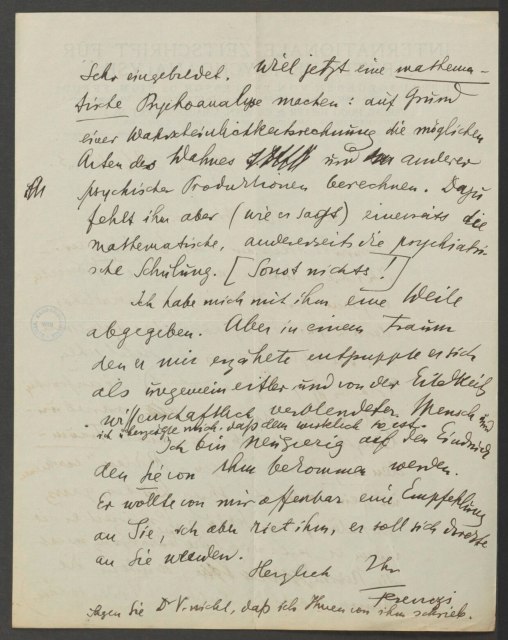 Sehr eingebildet. Will jetzt eine mathema-
tische Psychoanalyse machen: auf Grund
einer Wahrscheinlichkeitsrechnung die möglichen
Arten des Wahnes und anderer
psychischer Produktionen berechnen. Dazu
fehlt ihm aber (wie er sagt) einerseits die
mathematische, andererseits die psychiatri-
sche Schulung. [Sonst nichts!]
Ich habe mich mit ihm eine Weile
abgegeben. Aber in einem Traum
den er mir erzählte entpuppte er sich
als ungemein eitler und von der Eitelkeit
wissenschaftlich verblendeter Mensch und
ich überzeugte mich, daß dem wirklich so ist.
Ich bin neugierig auf den Eindruck
den Sie von ihm bekommen werden.
Er wollte von mir offenbar eine Empfehlung
an Sie, ich aber riet ihm, er soll sich direkte
an Sie wenden.
Herzlich Ihr
Ferenczi
Sagen Sie Dr V. nicht, daß ich Ihnen von ihm schrieb.